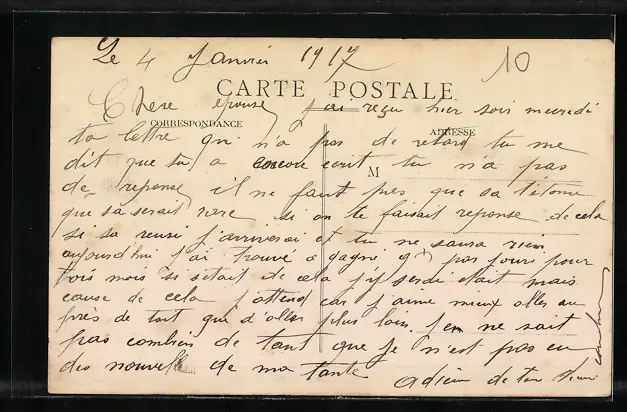 Le 4 Janvier 1917
10
CARTE POSTALE
Chere epouse j'ai reçu hier soir mecredi
CORRESPONDANCE
ADRESSE
ta lettre qui n'a pas de retard tu me
dit que tu a encore ecrit tu n'a pas
M
de reponse il ne faut pas que sa t'etonne
que sa serait rare si on te faisait reponse de cela
si sa reusi j'arriverai et tu ne saura rien
aujourd'hui j'ai trouvé a gagné 9 f par jour pour
trois mois si s'etait de cela j'y serai dait mais
cause de cela j'attend car j'aime mieux aller au
près de toit que d'aller plus loin. J'en ne sait
pas combien de tant que je n'est pas eu
des nouvelle de ma tante
adieu de ton